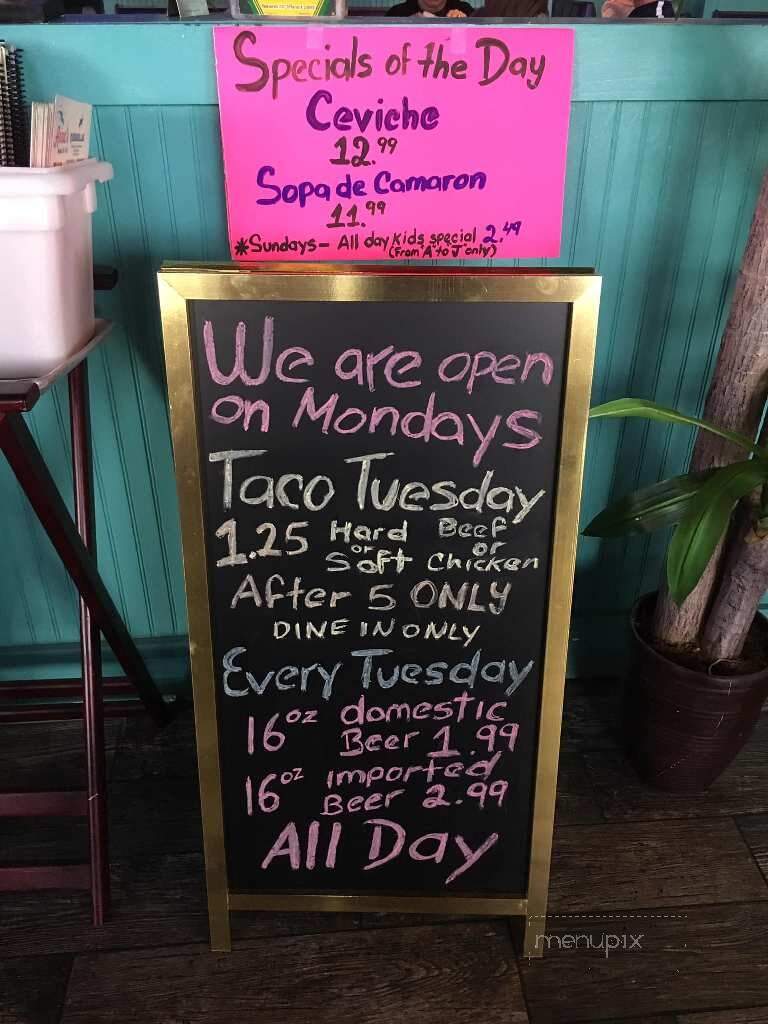 Specials of the Day
Ceviche
12.99
Sopa de Camaron
11.99
*Sundays- All day kids special 2.49
(From 'A' to 'J' only)
We are open
on Mondays
Taco Tuesday
1.25 Hard or Soft Beef or Chicken
After 5 ONLY
DINE IN ONLY
Every Tuesday
16oz domestic
Beer 1.99
16oz imported
Beer 2.99
All Day
menupix